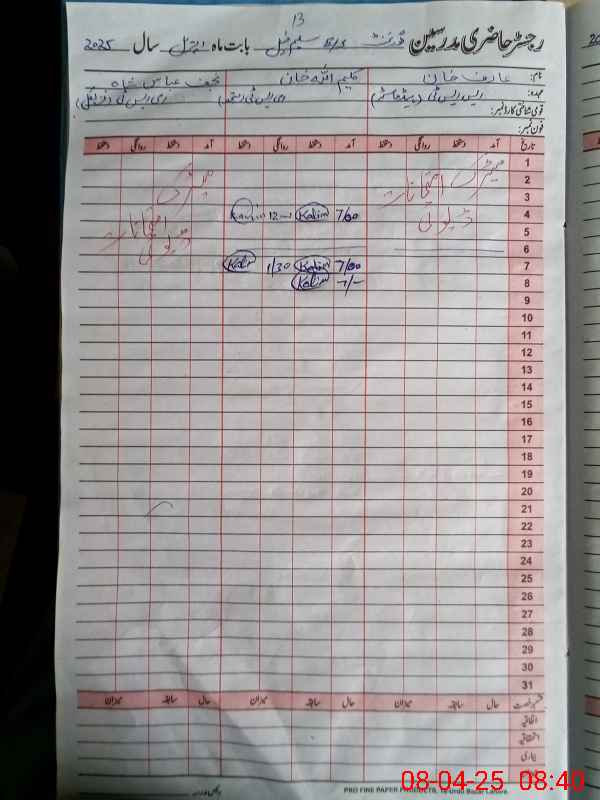 13
رجسٹر حاضری مدرسین گورنمنٹ بابت ماہ اپریل سال 2025
نام: عارف خان کلیم اللہ خان نجف عباس شاہ
عہدہ:
قومی شناختی کارڈ نمبر:
فون نمبر:
تاریخ آمد دستخط روانگی دستخط آمد دستخط روانگی دستخط آمد دستخط روانگی دستخط
میٹرک امتحانات ڈیوٹی
میٹرک امتحانات ڈیوٹی
1
2
3
4 7/00 Kalim 12
5
6
7 7/00 Kalim 1/30 Kalim
8 7/- Kalim
9
10
11
12
13
14
15
16
17
18
19
20
21
22
23
24
25
26
27
28
29
30
31
حال سابقہ میزان حال سابقہ میزان حال سابقہ میزان
اتفاقیہ
استحقاقیہ
بیماری
PRO FINE PAPER PRODUCTS, 16-Urdu Bazar Lahore.
08-04-25 08:40